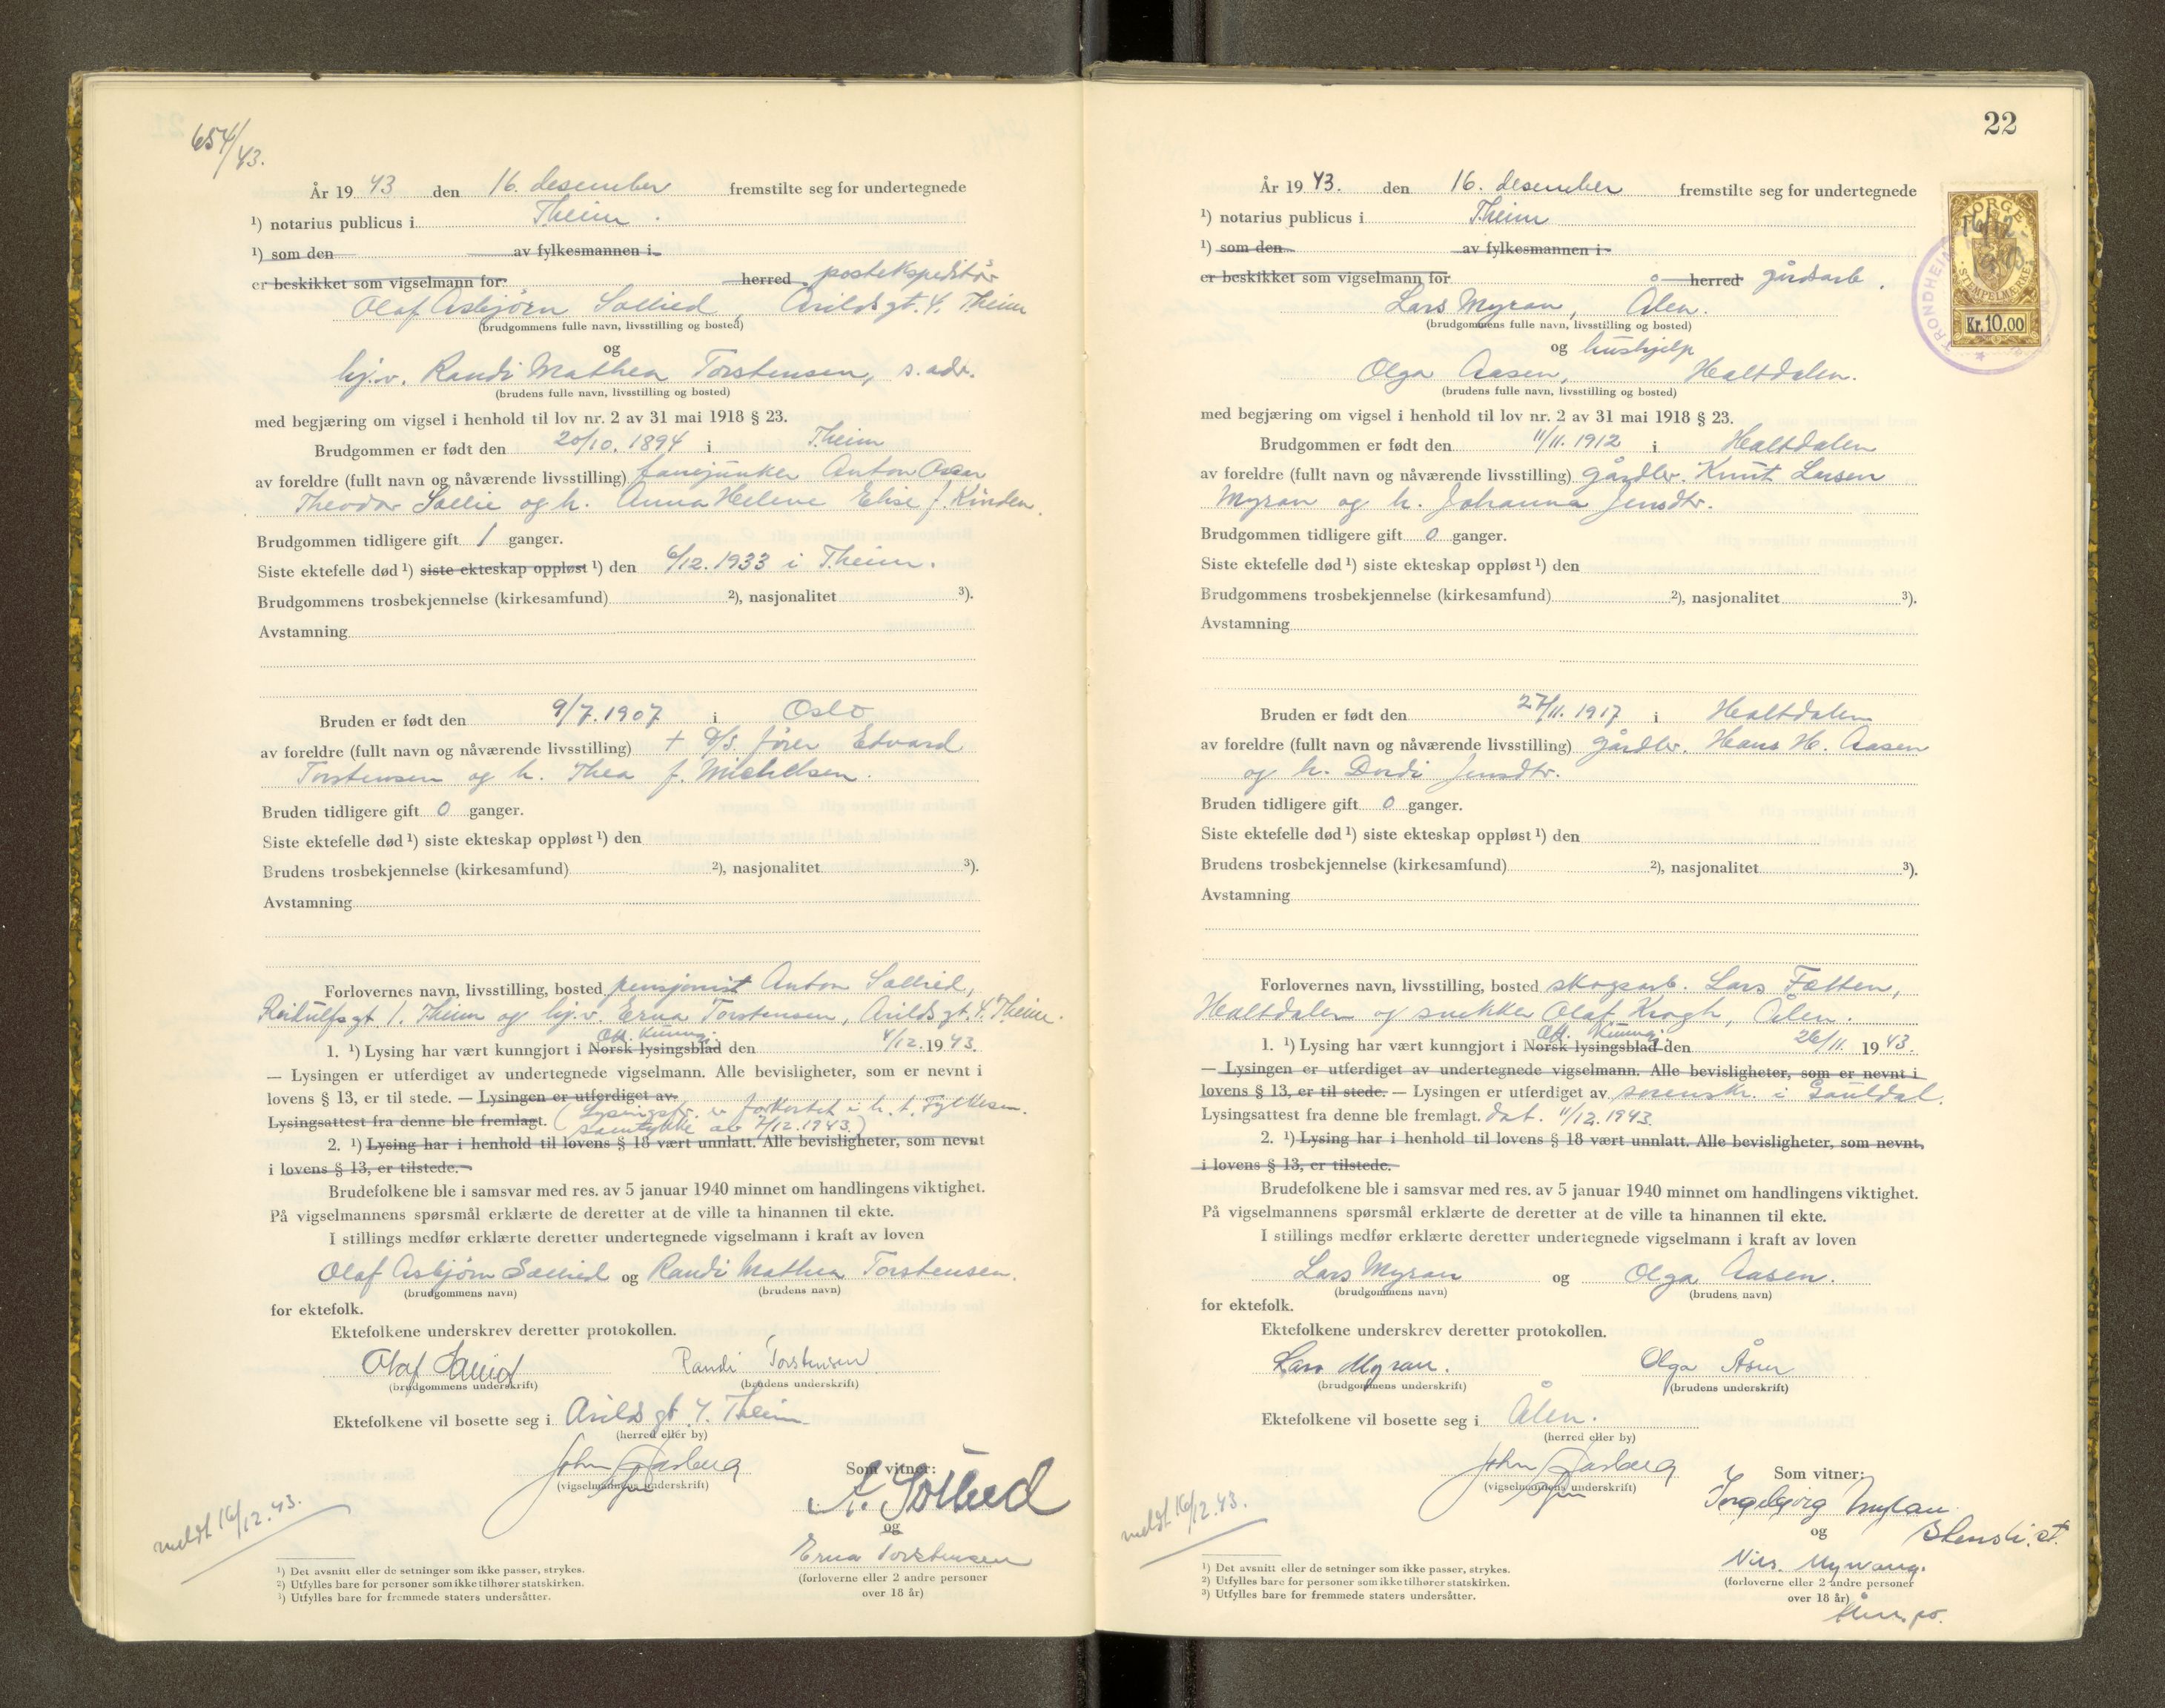 654/43.
År 1943 den 16. desember fremstilte seg for undertegnede
¹) notarius publicus i T.heim.
¹) som den av fylkesmannen i
er beskikket som vigselmann for: herred postekspeditör
Olaf Asbjörn Sollied, Arildsgt. 4. T.heim
(brudgommens fulle navn, livsstilling og bosted)
og
hj.v. Randi Mathea Torstensen, s. adr.
(brudens fulle navn, livsstilling og bosted)
med begjæring om vigsel i henhold til lov nr. 2 av 31 mai 1918 § 23.
Brudgommen er født den 20/10. 1894 i T.heim
av foreldre (fullt navn og nåværende livsstilling) fanejunker Anton Oscar
Theodor Sollie og h. Anna Helene Elise f. Kinden.
Brudgommen tidligere gift 1 ganger.
Siste ektefelle død ¹) siste ekteskap oppløst ¹) den 6/12. 1933 i T.heim.
Brudgommens trosbekjennelse (kirkesamfund) ²), nasjonalitet ³).
Avstamning
Bruden er født den 9/7. 1907 i Oslo
av foreldre (fullt navn og nåværende livsstilling) + d/s. fører Edvard
Torstensen og h. Thea f. Michelsen.
Bruden tidligere gift 0 ganger.
Siste ektefelle død ¹) siste ekteskap oppløst ¹) den
Brudens trosbekjennelse (kirkesamfund) ²), nasjonalitet ³).
Avstamning
Forlovernes navn, livsstilling, bosted pensjonist Anton Sollied,
Reidulfsgt 1. T.heim og hj.v. Erna Torstensen, Arildsgt. 4. T.heim.
Off. Kunng.
1. ¹) Lysing har vært kunngjort i Norsk lysingsblad den 4/12. 1943.
— Lysingen er utferdiget av undertegnede vigselmann. Alle bevisligheter, som er nevnt i
lovens § 13, er til stede. — Lysingen er utferdiget av
Lysingsattest fra denne ble fremlagt. (Lysingsfr. er forkortet i h. t. Fylkesm.
samtykke av 7/12. 1943.)
2. ¹) Lysing har i henhold til lovens § 18 vært unnlatt. Alle bevisligheter, som nevnt
i lovens § 13, er tilstede.
Brudefolkene ble i samsvar med res. av 5 januar 1940 minnet om handlingens viktighet.
På vigselmannens spørsmål erklærte de deretter at de ville ta hinannen til ekte.
I stillings medfør erklærte deretter undertegnede vigselmann i kraft av loven
Olaf Asbjörn Sollied og Randi Mathea Torstensen.
(brudgommens navn) (brudens navn)
for ektefolk.
Ektefolkene underskrev deretter protokollen.
Olaf Sollied Randi Torstensen
(brudgommens underskrift) (brudens underskrift)
Ektefolkene vil bosette seg i Arildsgt. 4. T.heim
(herred eller by)
John Aasberg
(vigselmannens underskrift)
Som vitner:
A. Sollied
og
Erna Torstensen
(forloverne eller 2 andre personer
over 18 år)
meldt 16/12.43.
¹) Det avsnitt eller de setninger som ikke passer, strykes.
²) Utfylles bare for personer som ikke tilhører statskirken.
³) Utfylles bare for fremmede staters undersåtter.
22
NORGE
16/12
STEMPELMERKE
Kr. 10,00
TRONDHEIM
År 1943. den 16. desember fremstilte seg for undertegnede
¹) notarius publicus i T.heim
¹) som den av fylkesmannen i
er beskikket som vigselmann for herred gårdsarb.
Lars Myran, Ålen.
(brudgommens fulle navn, livsstilling og bosted)
og hushjelp
Olga Aasen, Haltdalen.
(brudens fulle navn, livsstilling og bosted)
med begjæring om vigsel i henhold til lov nr. 2 av 31 mai 1918 § 23.
Brudgommen er født den 11/11. 1912 i Haltdalen
av foreldre (fullt navn og nåværende livsstilling) gårdbr. Knut Larsen
Myran og h. Johanna Jensdtr.
Brudgommen tidligere gift 0 ganger.
Siste ektefelle død ¹) siste ekteskap oppløst ¹) den
Brudgommens trosbekjennelse (kirkesamfund) ²), nasjonalitet ³).
Avstamning
Bruden er født den 27/11. 1917 i Haltdalen
av foreldre (fullt navn og nåværende livsstilling) gårdbr. Hans H. Aasen
og h. Dordi Jensdtr.
Bruden tidligere gift 0 ganger.
Siste ektefelle død ¹) siste ekteskap oppløst ¹) den
Brudens trosbekjennelse (kirkesamfund) ²), nasjonalitet ³).
Avstamning
Forlovernes navn, livsstilling, bosted skogsarb. Lars Fætten,
Haltdalen og snekker Olaf Krogh, Ålen.
Off. Kunng.
1. ¹) Lysing har vært kunngjort i Norsk lysingsblad den 26/11. 1943.
— Lysingen er utferdiget av undertegnede vigselmann. Alle bevisligheter, som er nevnt i
lovens § 13, er til stede. — Lysingen er utferdiget av sorenskr. i Gauldal.
Lysingsattest fra denne ble fremlagt. dat. 11/12. 1943.
2. ¹) Lysing har i henhold til lovens § 18 vært unnlatt. Alle bevisligheter, som nevnt,
i lovens § 13, er tilstede.
Brudefolkene ble i samsvar med res. av 5 januar 1940 minnet om handlingens viktighet.
På vigselmannens spørsmål erklærte de deretter at de ville ta hinannen til ekte.
I stillings medfør erklærte deretter undertegnede vigselmann i kraft av loven
Lars Myran og Olga Aasen.
(brudgommens navn) (brudens navn)
for ektefolk.
Ektefolkene underskrev deretter protokollen.
Lars Myran. Olga Åsen
(brudgommens underskrift) (brudens underskrift)
Ektefolkene vil bosette seg i Ålen.
(herred eller by)
John Aasberg
(vigselmannens underskrift)
Som vitner:
Ingebjørg
og
Nils
(forloverne eller 2 andre personer
over 18 år)
meldt 16/12.43.
¹) Det avsnitt eller de setninger som ikke passer, strykes.
²) Utfylles bare for personer som ikke tilhører statskirken.
³) Utfylles bare for fremmede staters undersåtter.